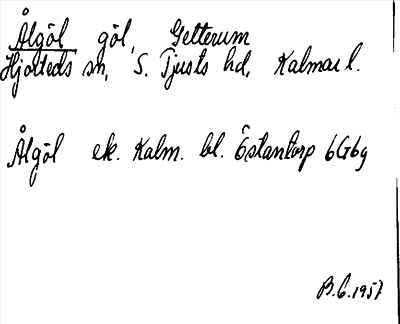 Ålgöl göl, Getterum
Hjorteds sn, S. Tjusts hd, Kalmar l.
Ålgöl ek. Kalm. bl. Östantorp 6G6g
B.C. 1957